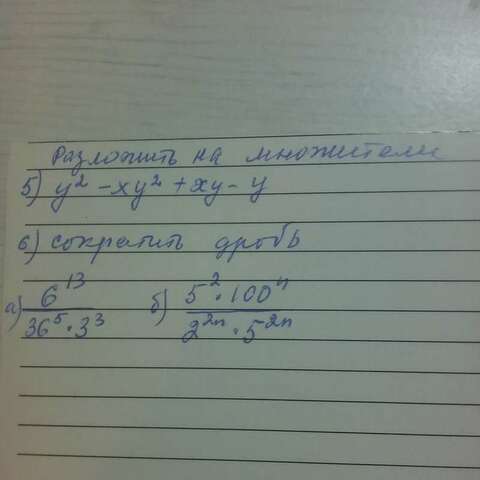 Разложить на множители
5) y² - xy² + xy - y
6) сократить дробь
а) 6¹³ / 36⁵ · 3³ б) 5² · 100ⁿ / 2²ⁿ · 5²ⁿ